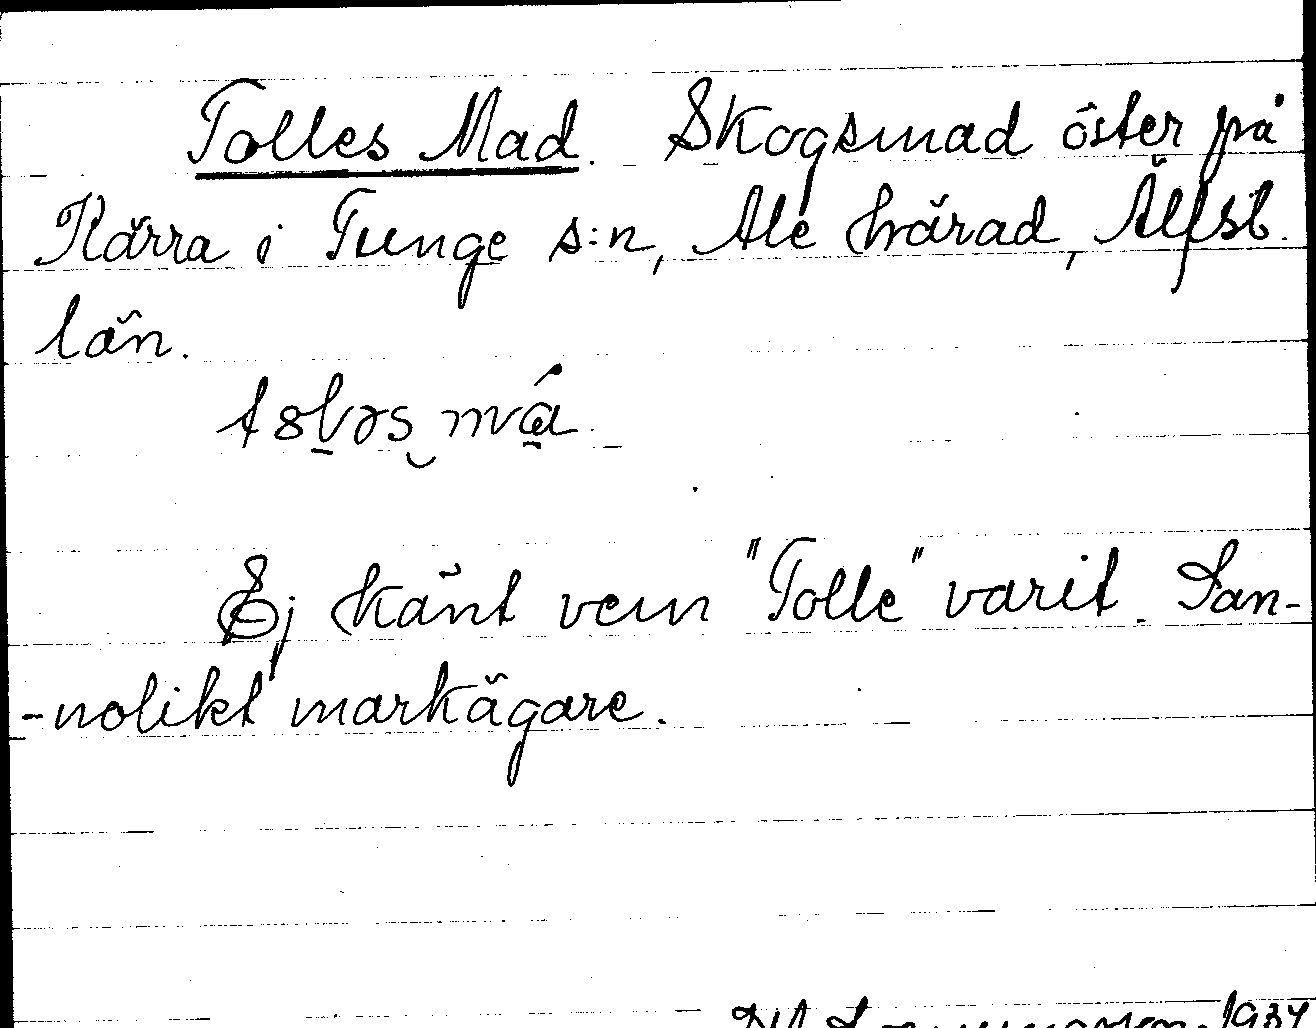 Tolles Mad. Skogsmad öster på
Kärra i Tunge s:n, Ale härad, Älfsb.
län.
Ej känt vem "Tolle" varit. San-
-nolikt markägare.
1934